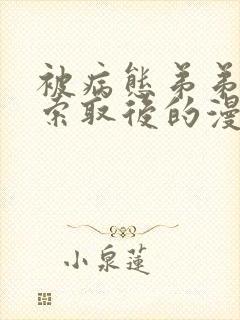 被病態弟弟
索取後的漫
小泉蓮